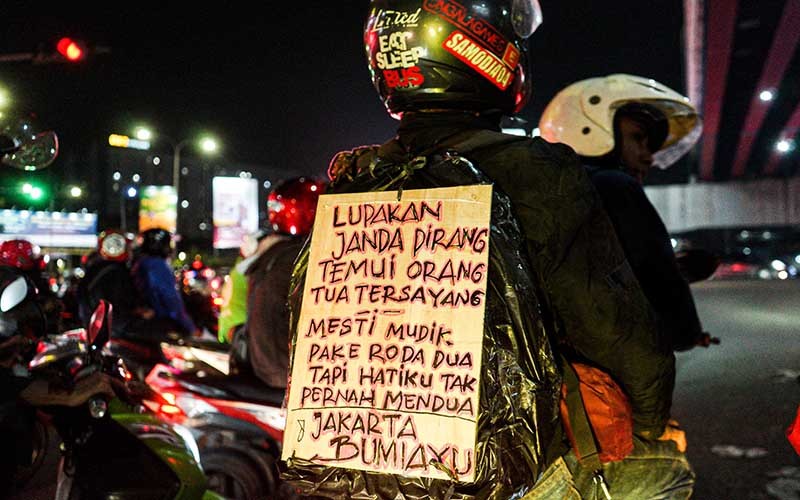 Limited
EAT
SLEEP
BUS
SAMODRA04
LUPAKAN
JANDA DIRANG
TEMUI ORANG
TUA TERSAYANG
MESTI MUDIK
PAKE RODA DUA
TAPI HATIKU TAK
PERNAH MENDUA
JAKARTA
BUMIAYU